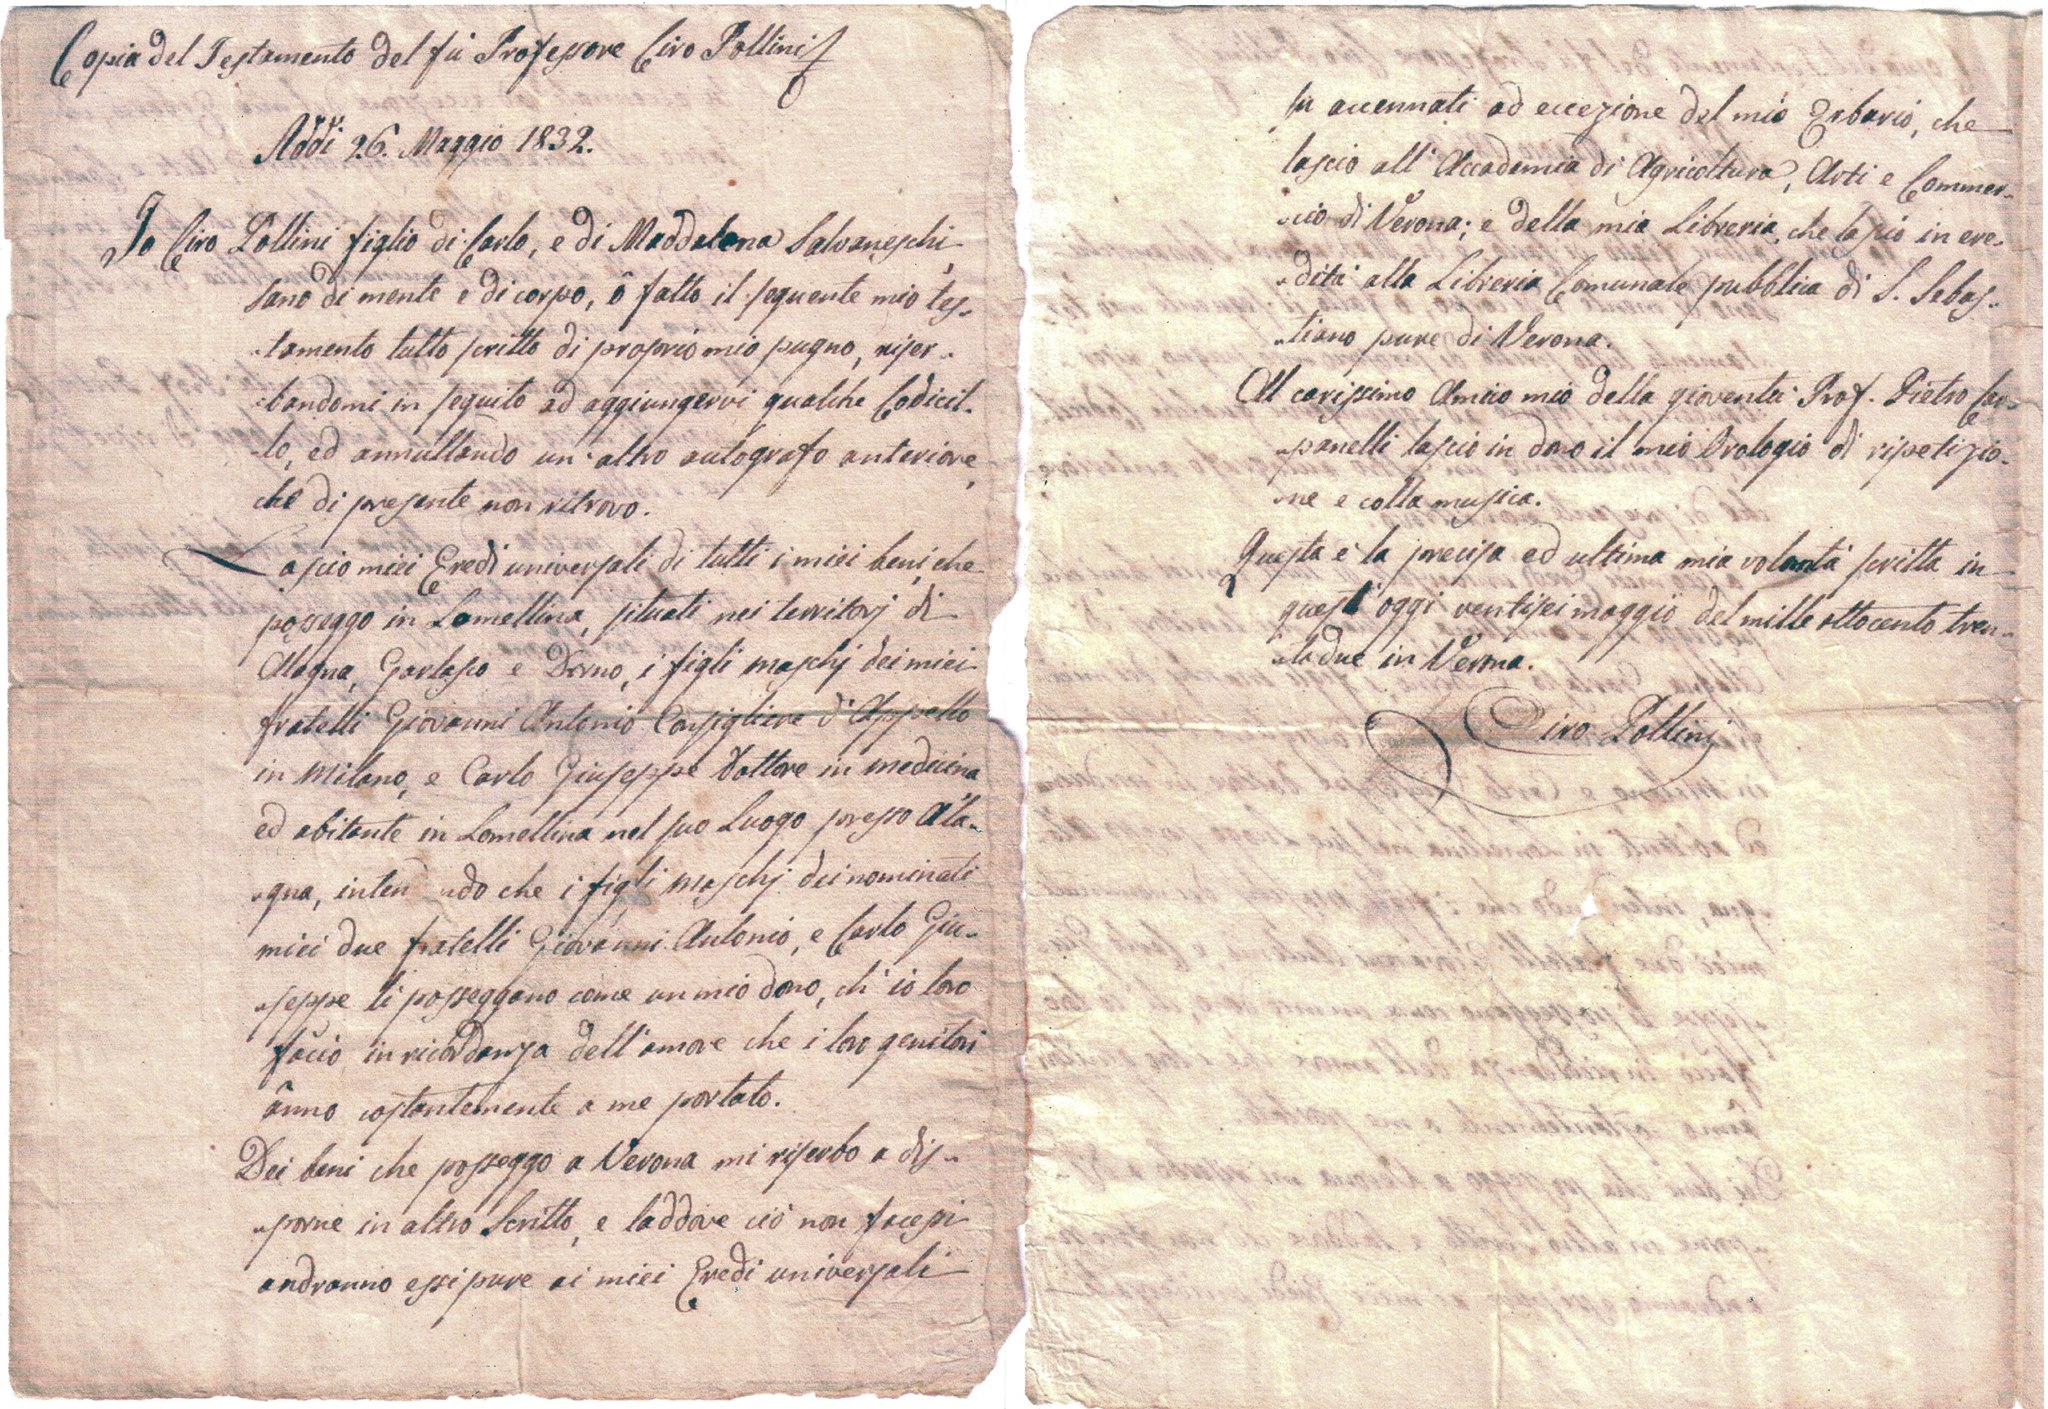 Copia del Testamento del fù Professore Ciro Pollini
Addi 26. Maggio 1832.
Io Ciro Pollini figlio di Carlo, e di Maddalena Salvaneschi,
sano di mente e di corpo, ô fatto il seguente mio tes-
-tamento tutto scritto di proprio mio pugno, riser-
-bandomi in seguito ad aggiungervi qualche Codicil-
-lo, ed annullando un'altro autografo anteriore,
che di presente non ritrovo.
Lascio miei Eredi universali di tutti i miei beni, che
posseggo in Lomellina, situati nei territorj di
Alagna, Garlasco e Dorno, i figli maschj dei miei
fratelli Giovanni Antonio Consigliere d'Appello
in Milano, e Carlo Giuseppe Dottore in medicina,
ed abitante in Lomellina nel suo Luogo presso Ala-
-gna, inten ndo che i figli maschj dei nominati
miei due fratelli Giovanni Antonio, e Carlo Giu-
-seppe li posseggano come un mio dono, ch'io loro
faccio in ricordanza dell'amore che i loro genitori
ânno costantemente a me portato.
Dei beni che posseggo a Verona mi riserbo a dis-
-porne in altro Scritto, e laddove ciò non facessi
andranno essi pure ai miei Eredi universali
su accennati ad eccezione del mio Erbario, che
lascio all'Accademia di Agricoltura, Arti e Commer-
-cio di Verona; e della mia Libreria, che lascio in ere-
-dità alla Libreria Comunale pubblica di S. Sebas-
-tiano pure di Verona.
Al carissimo Amico mio della gioventù Prof. Pietro Car-
-panelli lascio in dono il mio Orologio di ripetizio-
-ne e colla musica.
Questa è la precisa ed ultima mia volontà scritta in
quest'oggi ventisei maggio del mille ottocento tren-
-tadue in Verona.
Ciro Pollini